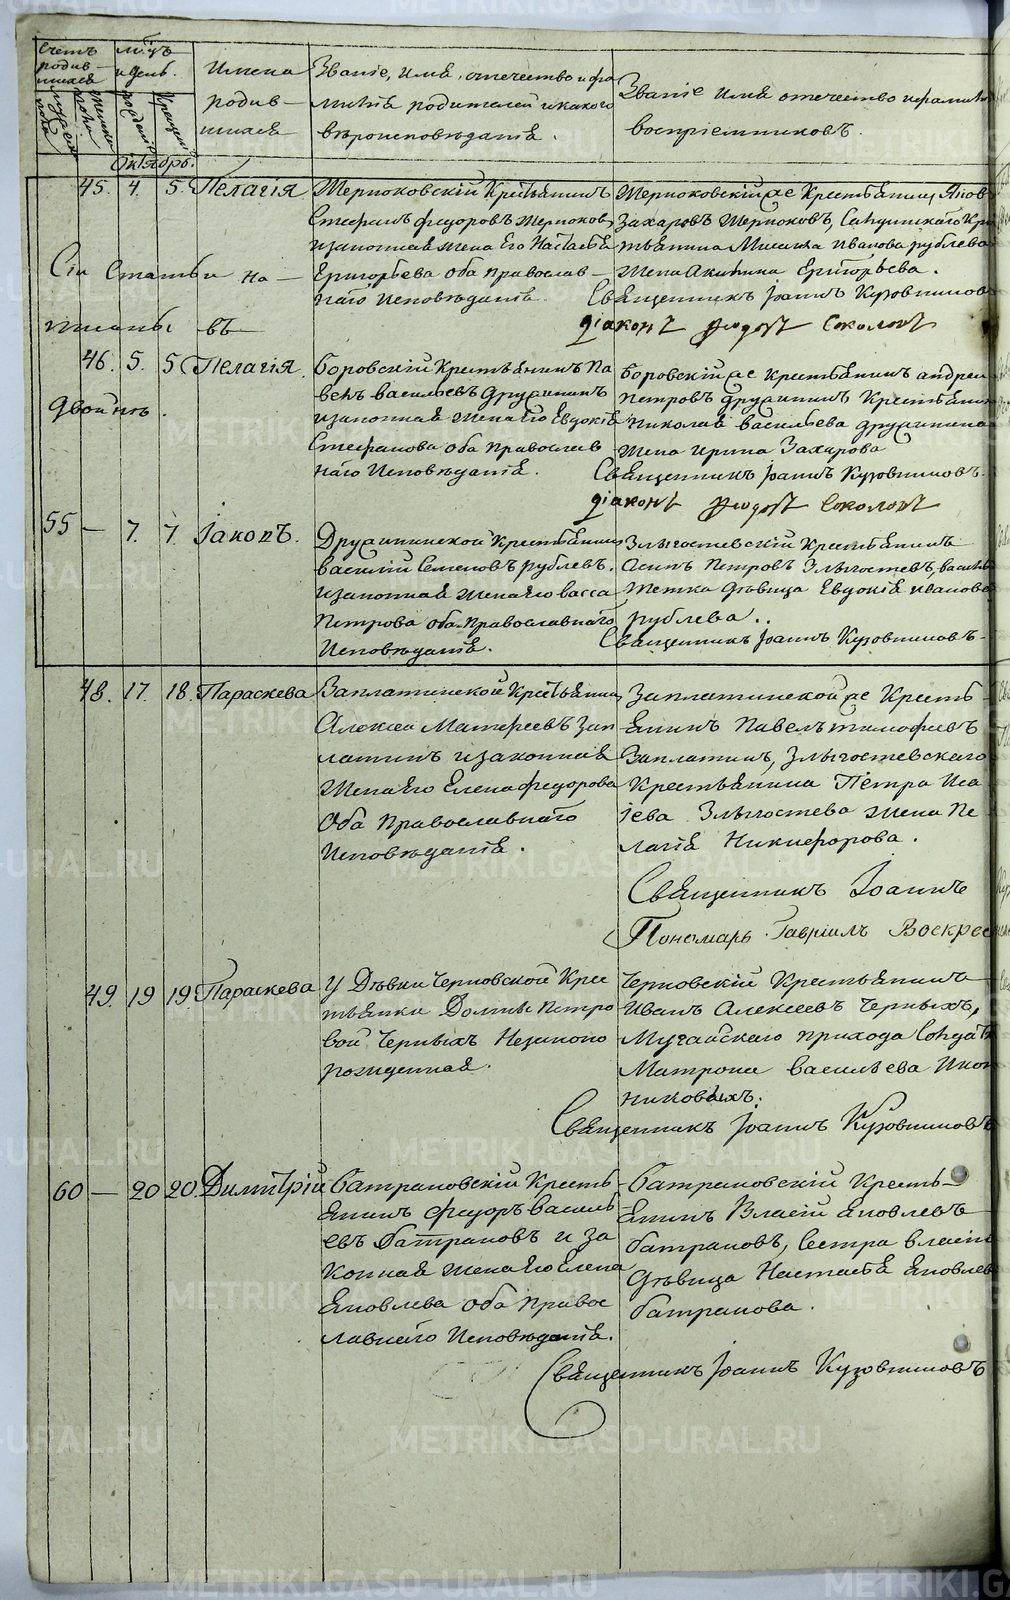 Счетъ родив-шихся
мужеска
женска
м҃цъ и день.
рожденія
крещенія
Имена
родив-
шихся
Званіе, имя, отечество и фа
милія родителей и какого
вѣроисповѣданія.
Званіе имя отечество и фамилія
воспріемниковъ.
Октябрь.
45. 4. 5. Пелагія
Крестьянинъ
Стефанъ Федоровъ
и законная жена его Настасья
Григорьева оба православ-
наго исповѣданія.
же Крестьянинъ Яковъ
Захаровъ
Иванова Рублева
жена Акилина Григорьева.
Священникъ Іоаннъ Кузовниковъ
діаконъ Ѳеодотъ Соколовъ
Сіи статьи на-
писаны въ-
двойнѣ.
46. 5. 5 Пелагія.
Боровскій крестьянинъ Па
велъ Васильевъ Дружининъ
и законная жена его Евдокія
Стефанова оба православ
наго исповѣданія.
Боровскій же крестьянинъ Андрей
Петровъ Дружининъ, крестьянина
Николая Васильева Дружинина
жена Ирина Захарова
Священникъ Іоаннъ Кузовниковъ.
діаконъ Ѳеодотъ Соколовъ
55 — 7. 7. Іаковъ.
Дружининской крестьянинъ
Василій Семеновъ Рублевъ.
и законная жена его Васса
Петрова оба православнаго
исповѣданія.
Злыгостевскій крестьянинъ
Осипъ Петровъ Злыгостевъ,
тетка дѣвица Евдокія Иванова
Рублева..
Священникъ Іоаннъ Кузовниковъ-
48. 17. 18. Параскева
Заплатинской крестьянинъ
Алексей Матфеевъ Зап
латинъ и законная
жена его Елена Федорова
оба православнаго
исповѣданія.
Заплатинской же кресть-
янинъ Павелъ Тимофеевъ
Заплатинъ, Злыгостевского
крестьянина Петра Иса
іева Злыгостева жена Пе
лагія Никифорова.
Священникъ Іоаннъ
Пономарь Гавріилъ Воскресе
49. 19 19 Параскева
У дѣвки Черновской крес
тьянки Домны Петро
вой Черныхъ незаконо
рожденная.
Черновскій крестьянинъ
Иванъ Алексеевъ Черныхъ,
Мугайскаго прихода солдатка
Матрона Васильева Икон
никовыхъ.
Священникъ Іоаннъ Кузовниковъ
60 — 20 20. Димитрій
Батраковскій кресть-
янинъ Федоръ Василь
евъ Батраковъ и за
конная жена его Елена
Яковлева оба правос
лавнаго исповѣданія.
Батраковскій кресть-
янинъ Власій Яковлевъ
Батраковъ, сестра Власія
дѣвица Настасья Яковлева
Батракова.
Священникъ Іоаннъ Кузовниковъ
METRIKI.GASO-URAL.RU